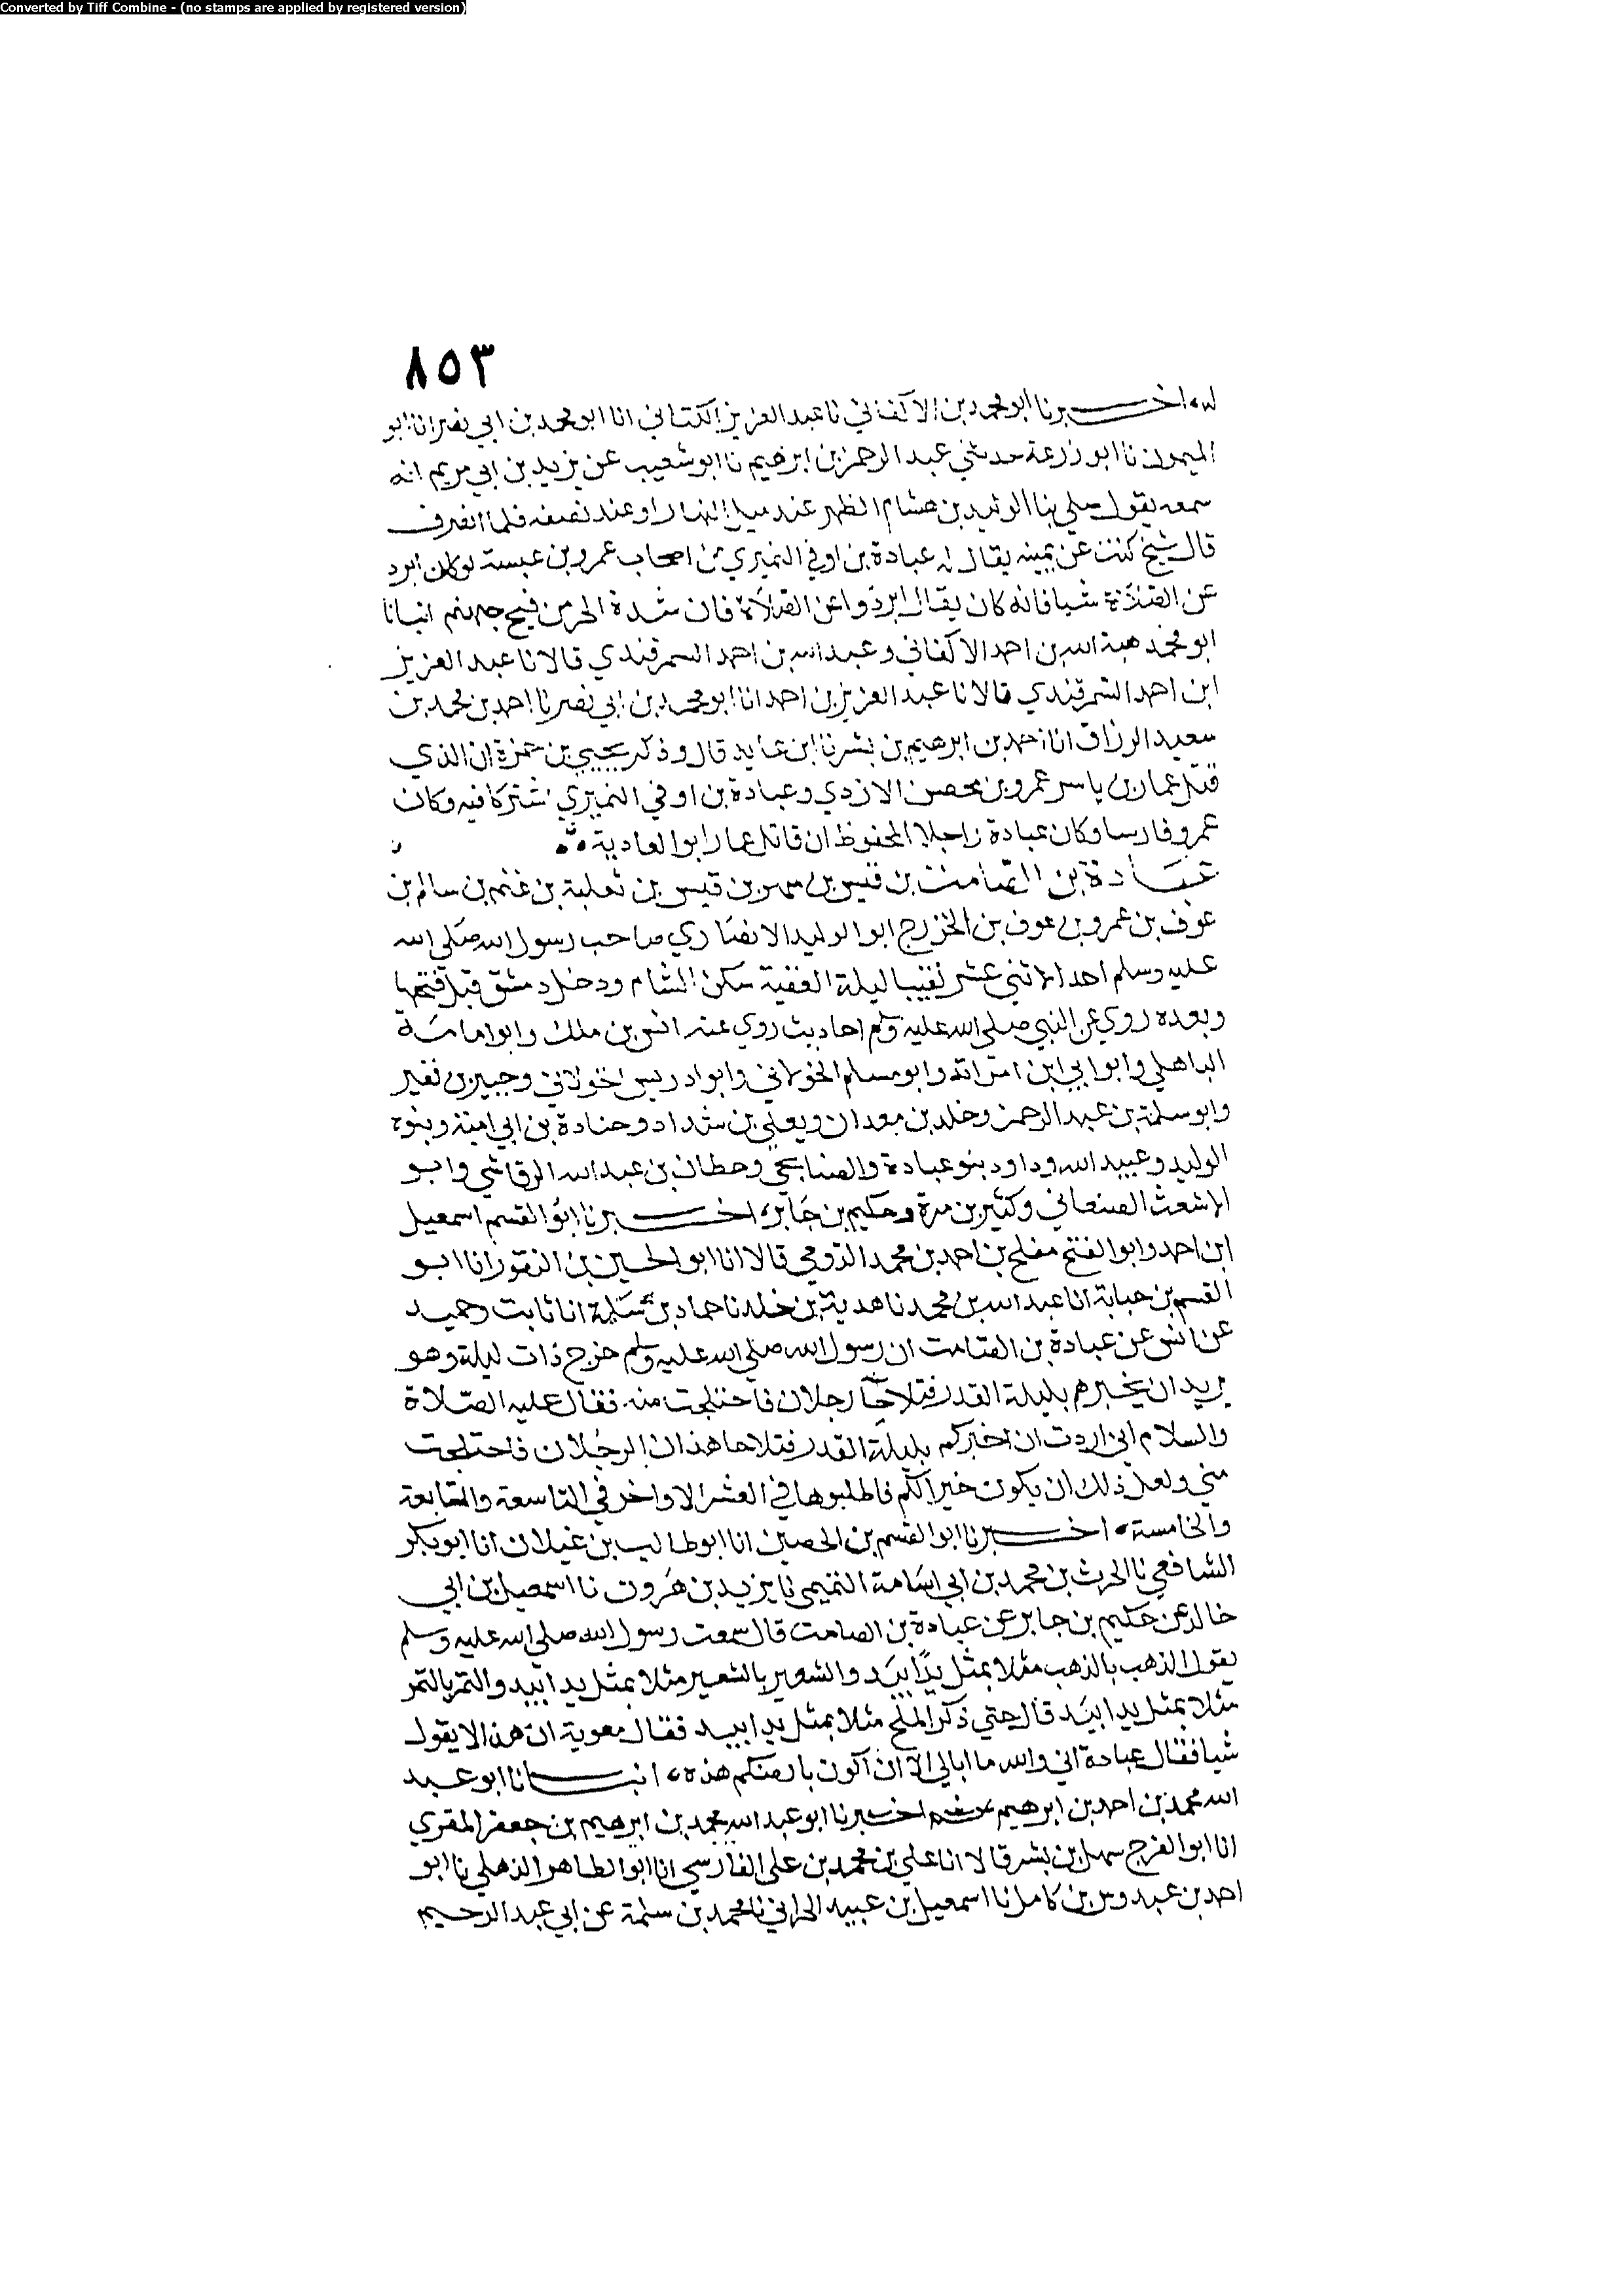 Converted by Tiff Combine - (no stamps are applied by registered version)
٨٥٣
له، اخبرنا ابو محمد بن الاكفاني نا عبد العزيز الكتاني انا ابو محمد بن ابي نصر انا ابو
الميمون نا ابو زرعة حدثني عبد الرحمن بن ابرهيم نا ابو شعيب عن يزيد بن ابي مريم انه
سمعه يقول صلي بنا الوليد بن هشام الظهر عند ميل النهار او عند نصفه فلما انصرف
قال شيخ كنت عن يمينه يقال له عبادة بن اوفي النميري من اصحاب عمرو بن عبسة لو كان ابرد
عن الصلاة شيا فانه كان يقال ابردوا عن الصلاة فان شدة الحر من فيح جهنم انبانا
ابو محمد هبة الله بن احمد الاكفاني وعبد الله بن احمد السمرقندي قالا نا عبد العزيز
ابن احمد السمرقندي قالا نا عبد العزيز بن احمد انا ابو محمد بن ابي نصر نا احمد بن محمد بن
سعيد الرزاق انا احمد بن ابرهيم بن بشر نا ابن عايد قال وذكر يحيي بن حمزة ان الذي
قتل عمار بن ياسر عمرو بن محصن الازدي وعبادة بن اوفي النميري اشتركا فيه وكان
عمرو فارسا وكان عبادة راجلا المحفوظ ان قاتل عمار ابو العادية
عبادة بن الصامت بن قيس بن صهر بن قيس بن ثعلبة بن غنم بن سالم بن
عوف بن عمرو بن عوف بن الخزرج ابو الوليد الانصاري صاحب رسول الله صلي الله
عليه وسلم احد الاثني عشر نقيبا ليلة العقبة سكن الشام ودخل دمشق قبل فتحها
وبعده روي عن النبي صلي الله عليه وسلم احاديث روي عنه انس بن ملك وابو امامة
الباهلي وابو ابي ابن امراته وابو مسلم الخولاني وابو ادريس الخولاني وجبير بن نفير
وابو سلمة بن عبد الرحمن وخلد بن معدان ويعلي بن شداد وجنادة بن ابي امية وبنوه
الوليد وعبيد الله وداود بنو عبادة والصنابحي وحطان بن عبد الله الرقاشي وابو
الاشعث الصنعاني وكثير بن مرة وحكيم بن جابر، اخبرنا ابو القسم اسمعيل
ابن احمد وابو الفتح مفلح بن احمد بن محمد الدومي قالا انا ابو الحسين بن النقور انا ابو
القسم بن حبابة انا عبد الله بن محمد نا هدبة بن خلد نا حماد بن سلمة انا ثابت وحميد
عن انس عن عبادة بن الصامت ان رسول الله صلي الله عليه وسلم خرج ذات ليلة وهو
يريد ان يخبرهم بليلة القدر فتلاحا رجلان فاختلجت منه فقال عليه الصلاة
والسلام اني اردت ان اخبركم بليلة القدر فتلاحا هذان الرجلان فاختلجت
مني ولعل ذلك ان يكون خيرا لكم فاطلبوها في العشر الاواخر في التاسعة والسابعة
والخامسة، اخبرنا ابو القسم بن الحصين انا ابو طالب بن غيلان انا ابو بكر
الشافعي نا الحرث بن محمد بن ابي اسامة التميمي نا يزيد بن هرون نا اسمعيل بن ابي
خالد عن حكيم بن جابر عن عبادة بن الصامت قال سمعت رسول الله صلي الله عليه وسلم
يقول الذهب بالذهب مثلا بمثل يدا بيد والشعير بالشعير مثلا بمثل يدا بيد والتمر بالتمر
مثلا بمثل يدا بيد قال حتي ذكر الملح مثلا بمثل يدا بيد فقال معوية ان هذا لا يقول
شيا فقال عبادة اني والله ما ابالي الا ان اكون بارضكم هذه، انبانا ابو عبد
الله محمد بن احمد بن ابرهيم اخبرنا ابو عبد الله محمد بن ابرهيم بن جعفر المقري
انا ابو الفرج سهل بن بشر قالا انا علي بن محمد بن علي الفارسي انا ابو الطاهر الذهلي نا ابو
احمد بن عبدوس بن كامل نا اسمعيل بن عبيد الحراني نا محمد بن سلمة عن ابي عبد الرحيم